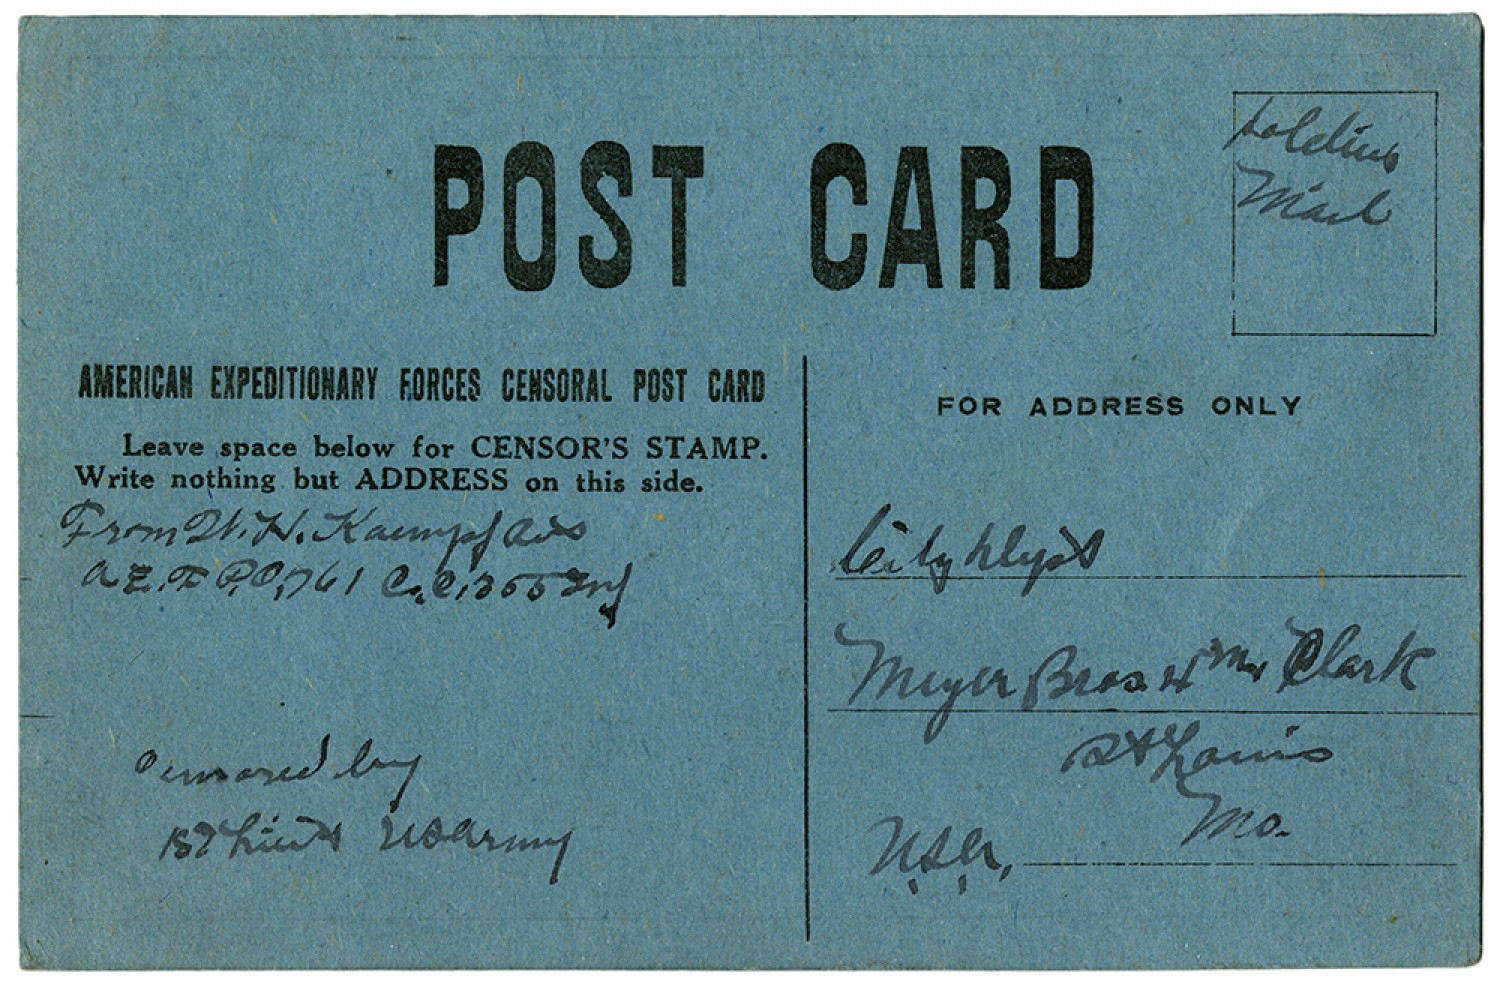 POST CARD
Soldiers
Mail
AMERICAN EXPEDITIONARY FORCES CENSORAL POST CARD
Leave space below for CENSOR'S STAMP.
Write nothing but ADDRESS on this side.
From W. H. Kaempf
A.E.F P.O. 761 Co. C. 355 Inf
Censored by
1st Lieut US Army
FOR ADDRESS ONLY
City
Meyer Bros Clark
St Louis
Mo.
U.S.A.